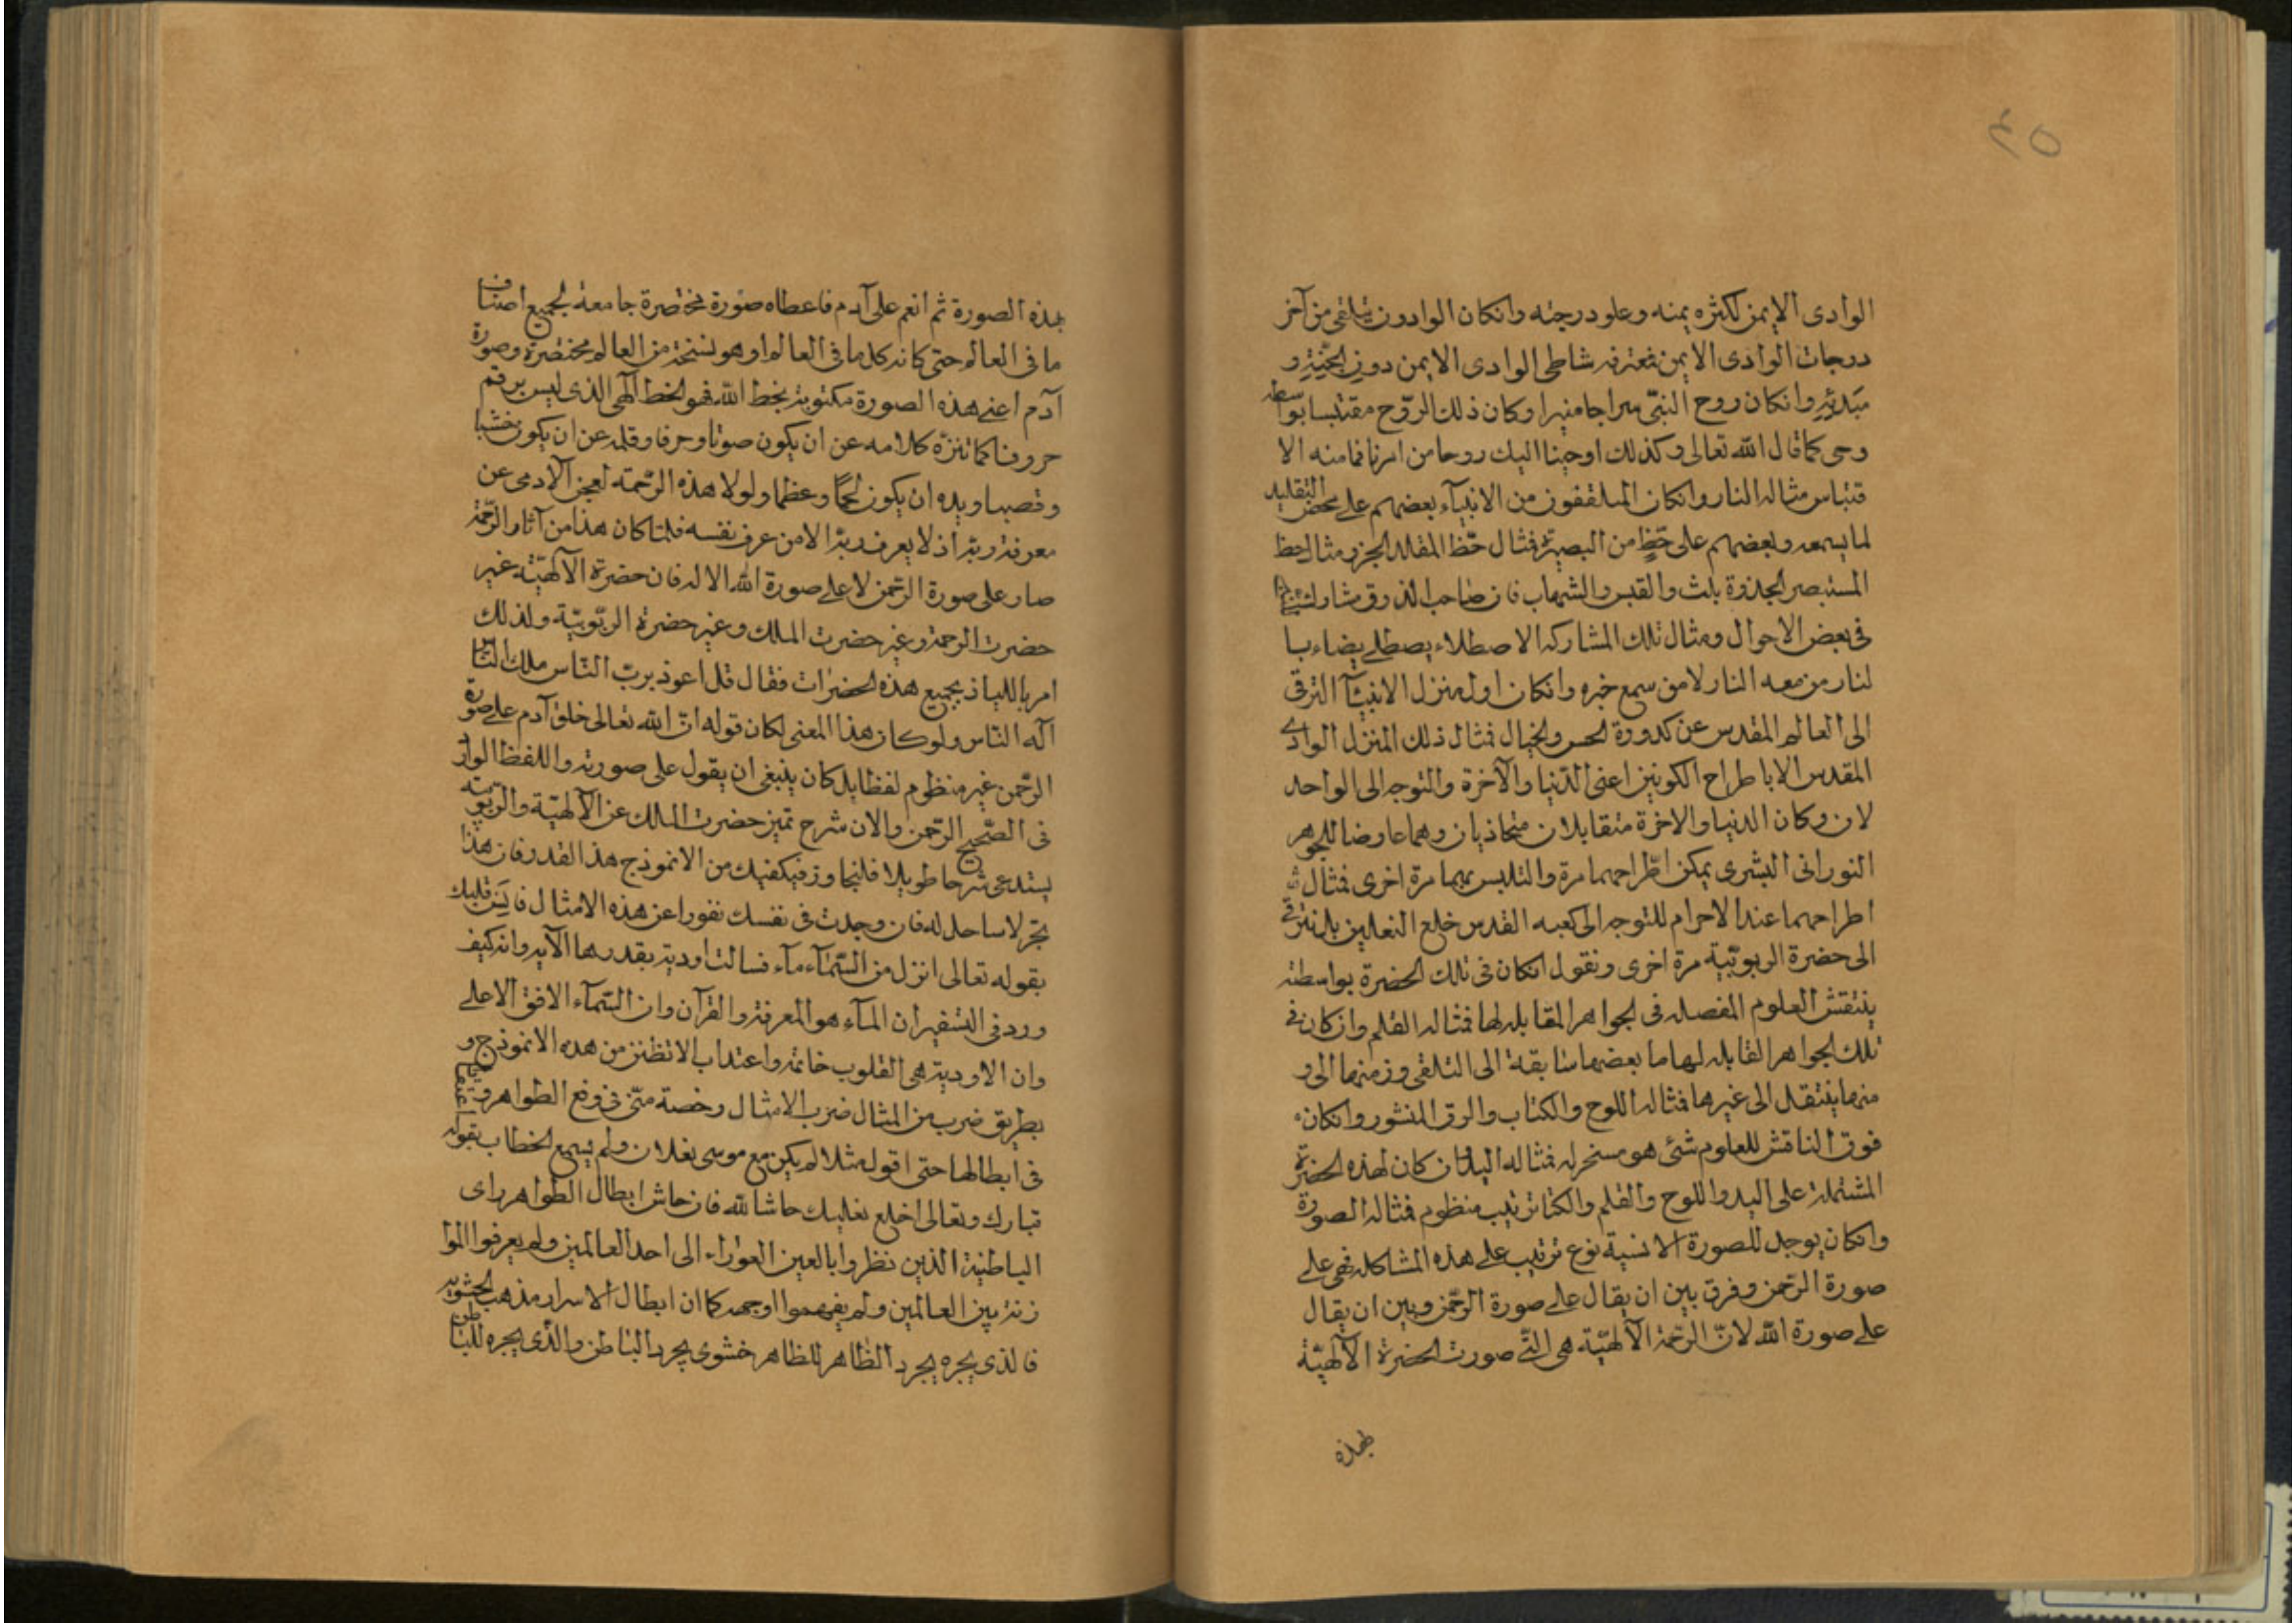 ٤٥
الوادى الايمن لكثره يمنه وعلو درجته وانكان الوادون يتلقى من آخر
درجات الوادى الايمن فمعترفه شاطى الوادى الايمن دون لجّتِهِ و
مَبدئِهِ وانكان روح النبّى سراجا منيرا وكان ذلك الرّوح مقتبسا بواسطه
وحى كما قال الله تعالى وكذلك اوحينا اليك روحا من امرنا فما منه الا
قتباس مثاله النار وانكان المتلقفون من الانبيآء بعضهم على محض التقليد
لما يسمعه وبعضهم على حَظٍ من البصيرة فمثال حَظ المقلد الجز ومثال حظ
المستبصر الجذوة بلث والقبس والشهاب فان صاحب الذوق مشارك للنبىّ
فى بعض الاحوال ومثال تلك المشاركه الاصطلاء يصطلى يضاء با
لنار من معه النار لا من سمع خبره وانكان اول منزل الانبيآ الترقى
الى العالم المقدس عن كدورة الحس والخيال فمثال ذلك المنزل الوادے
المقدس الا باطراح الكونين اعنى الدّنيا والآخرة والتوجه الى الواحد
لان وكان الدنيا والاخرة متقابلان متحاذيان وهما عارضا للجوهر
النورانى البشرى يمكن اطّراحهما مرة والتلبس بهما مرة اخرى فمثال
اطراحهما عند الاحرام للتوجه الى كعبه القدس خلع النعلين بل نترقّے
الى حضرة الربوبيّة مرة اخرى ونقول انكان فى تلك الحضرة بواسطته
ينتقش العلوم المفصله فى الجواهر المقابله لها فمثاله القلم وان كان فے
تلك الجواهر القابله لها ما بعضها سابقة الى التلقى ومنها الى و
منها ينتقل الى غيرها فمثاله اللوح والكتاب والرق المنشور وانكان
فوق الناقش للعلوم شئ هو مسخر له فمثاله اليد ان كان لهذه الحضرة
المشتملة على اليد واللوح والقلم والكتا ترتيب منظوم فمثاله الصورة
وانكان يوجد للصورة الانسية نوع ترتيب على هذه المشاكله فهى على
صورة الرّحمن وفرق بين ان يقال على صورة الرّحمن وبين ان يقال
على صورة الله لانّ الرّحمة الآلهيّة هى التّے صورت الحضرة الآلهيّة
بهذه
بهذه الصورة ثم انعم على آدم فاعطاه صورة مختصرة جامعة لجميع اصناف
ما فى العالم حتى كانه كل ما فى العالم او هو نسخة من العالم مختصرة وصورة
آدم اعنے هذه الصورة مكتوبة بخط الله فهو الخط الآلهى الذى ليس برقم
حروف كما تنزّه كلامه عن ان يكون صوتا وحرفا وقلمه عن ان يكون خشبا
وقصبا ويده ان يكون لحمًا وعظما ولولا هذه الرّحمة لعجز الآدمى عن
معرفة ربّه اذ لا يعرف ربّه الا من عرف نفسه فلمّا كان هذا من آثار الرّحمة
صار على صورة الرّحمن لا على صورة الله الاله فان حضرة الآلهيّة غير
حضرت الرحمة وغير حضرت الملك وغير حضرة الربّوبيّة ولذلك
امر باللياذ بجميع هذه الحضرات فقال قل اعوذ بربّ النّاس ملك النّاس
آله النّاس ولو كان هذا المعنى لكان قوله انّ الله تعالى خلق آدم على صورة
الرّحمن غير منظوم لفظا بل كان ينبغى ان يقول على صورته واللفظ الوارد
فى الصّحيح الرّحمن والان شرح تميز حضرت الملك عن الآلهيّة والرّبوبيّة
يستدعى شرحا طويلا فليتجاوز فيكفيك من الانموذج هذا القدر فان هذا
بحّر لا ساحل له فان وجدت فى نفسك نفورا عن هذه الامثال فاَنِس قلبك
بقوله تعالى انزل من السّمآء مآء فسالت اودية بقدرها الآيه وانه كيف
ورد فى التفسيران المآء هو المعرفة والقرآن وان السّمآء الافق الاعلى
وان الاودية هى القلوب خاتمة واعتذاب لا تظنن من هذه الانموذج و
بطريق ضرب من المثال ضرب الامثال رخصة منّى فى رفع الظواهر واعتقادا
فى ابطالها حتى اقول مثلا لم يكن مع موسى نعلان ولم يسمع الخطاب بقوله
تبارك وتعالى اخلع نعليك حاشا لله فان حاش ابطال الظواهر راى
الباطنية الذين نظروا بالعين العوراء الى احد العالمين ولم يعرفوا الموا
زنة بين العالمين ولم يفهموا اوجهه كما ان ابطال الاسرار مذهب الحشويه
فالذى يجره يجرد الظّاهر للظاهر خشوى يجرد الباطن والّذى يجره للباطن